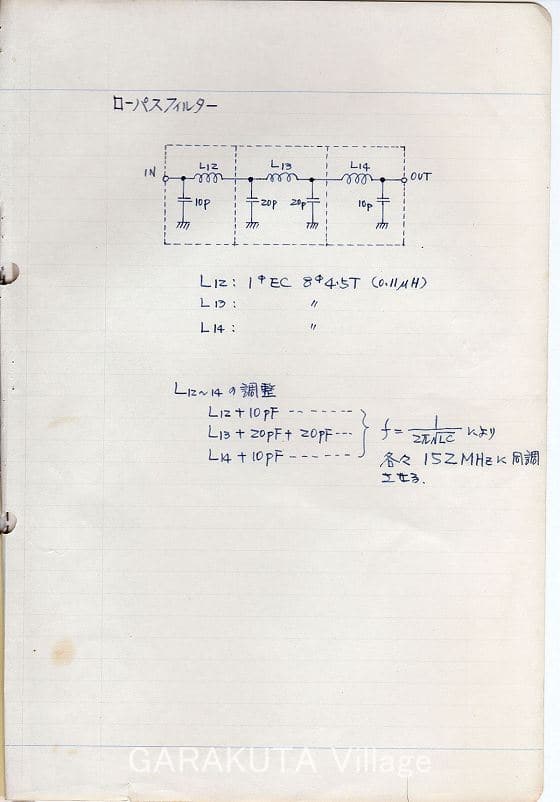 ローパスフィルター
L12 L13 L14
IN OUT
10P 20P 20P 10P
L12 : 1φEC 8φ4.5T (0.11μH)
L13 : 〃
L14 : 〃
L12~14 の調整
L12 + 10PF -------
L13 + 20PF + 20PF --- f = 1/2π√LC により
L14 + 10PF ------ 各々 152MHzに同調
させる.
GARAKUTA Village